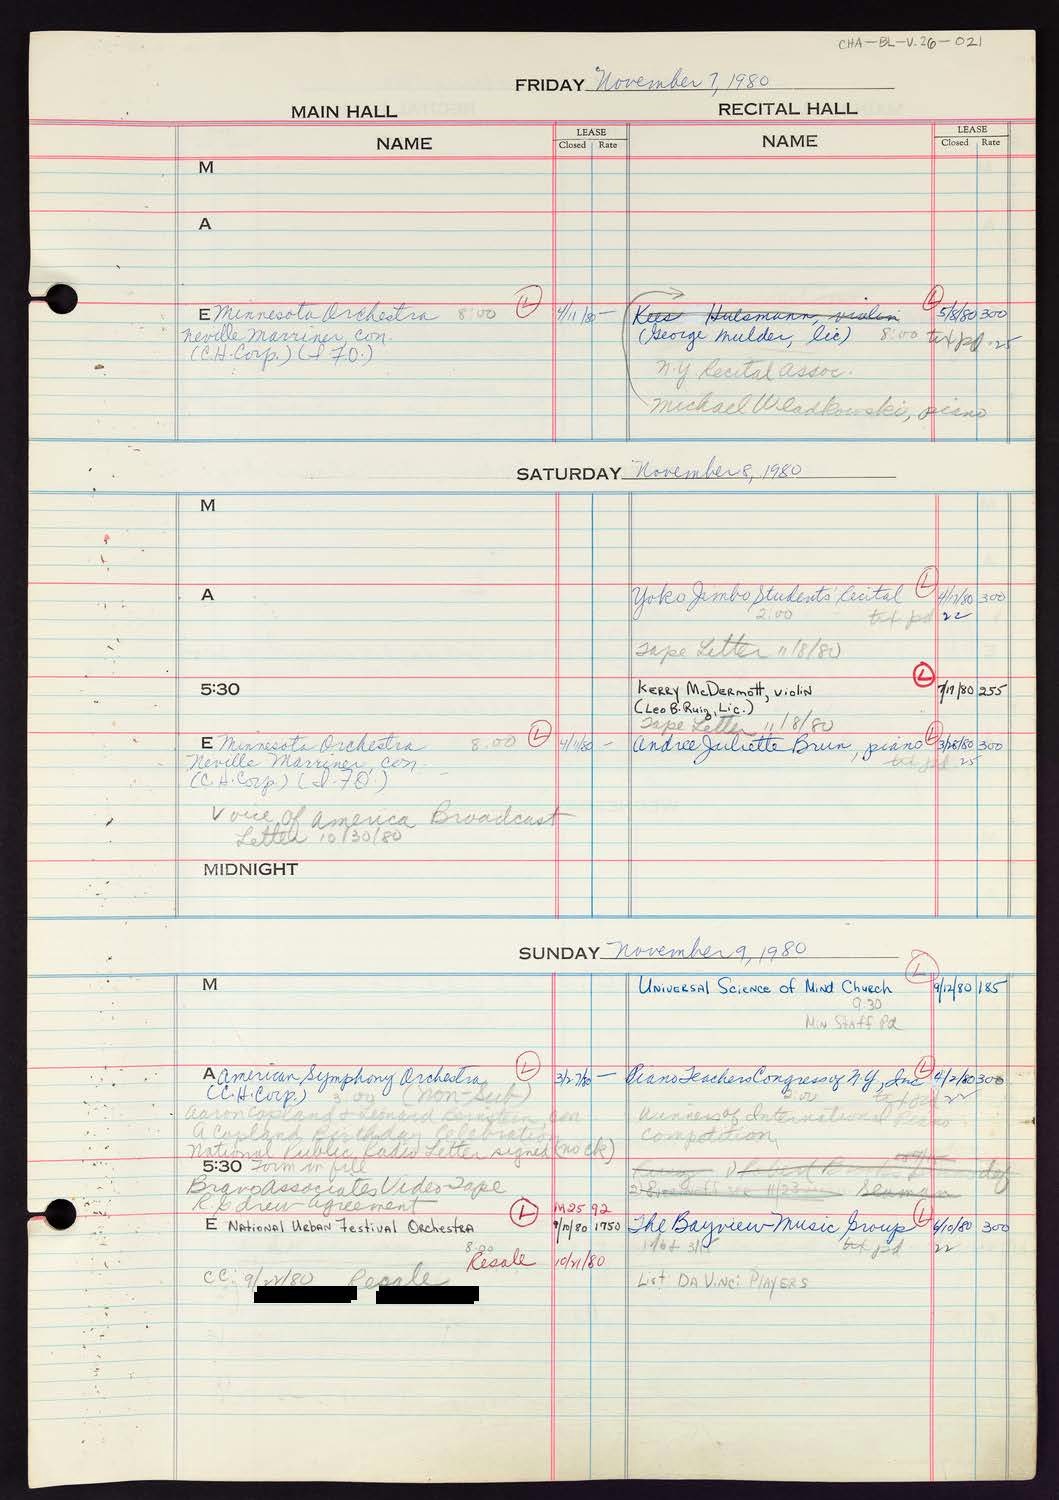 CHA-BL-V.26-021
FRIDAY November 7, 1980
MAIN HALL
RECITAL HALL
NAME
LEASE
Closed Rate
NAME
LEASE
Closed Rate
M
A
E Minnesota Orchestra 8:00 L 4/11/80 —
Neville Marriner, con.
(C.H.Corp.) (I 70.)
Kees Hulsmann, violin L 5/8/80 300
(George Mulder, lic) 8:00 txt pd. 25
N.Y. Recital Assoc.
Michael Wladkowski, piano
SATURDAY November 8, 1980
M
A
Yoko Jimbo Students' Recital L 4/17/80 300
2:00 txt pd 22
Tape Letter 11/8/80
5:30
Kerry McDermott, violin L 7/17/80 255
(Leo B. Ruiz, Lic.)
Tape Letter 11/8/80
E Minnesota Orchestra 8:00 L 4/11/80 —
Neville Marriner, con.
(C.H.Corp.) (I 70.)
Voice of America Broadcast
Letter 10/30/80
Andree Juliette Brun, piano L 3/28/80 300
txt pd. 25
MIDNIGHT
SUNDAY November 9, 1980
M
Universal Science of Mind Church L 9/12/80 185
9:30
Min Staff Pd
A American Symphony Orchestra L 3/27/80 —
(C.H.Corp.) 3:00 (non-Sub)
Aaron Copland & Leonard Bernstein, con
A Copland Birthday Celebration
National Public Radio Letter signed (no ck)
Piano Teachers Congress of N.Y., Inc L 4/2/80 300
2:00 txt pd 22
Winners of International Piano
Competition
5:30 Form in file
Bravo Associates Video-Tape
R. & drew agreement
Seaman
E National Urban Festival Orchestra L M25 92
9/10/80 1750
8:00
Resale 10/21/80
CC: 9/22/80 Resale
The Bayview Music Group L 6/10/80 300
txt pd 22
List: Da Vinci Players